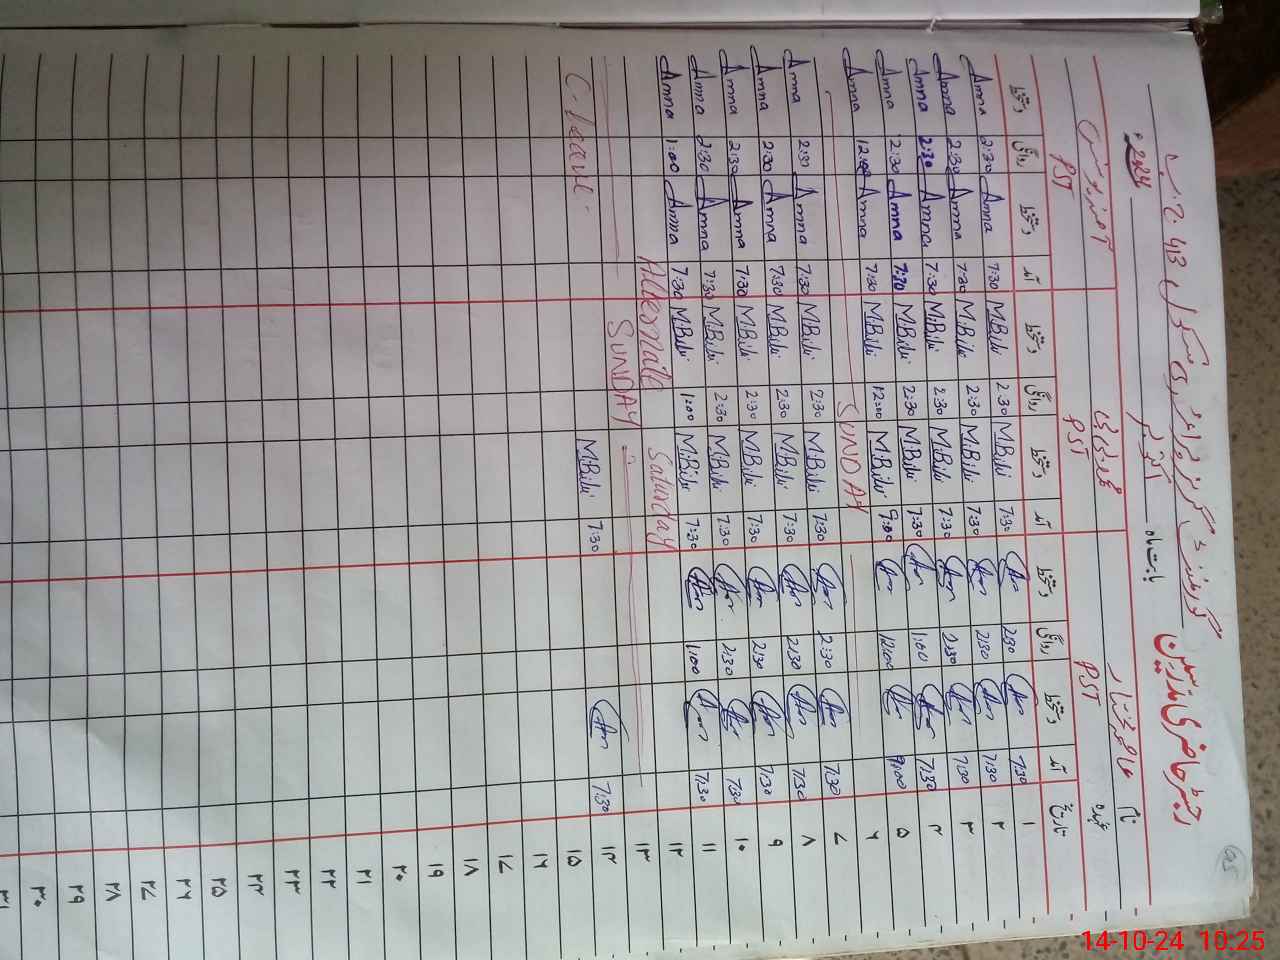 رجسٹر حاضری مدرسین گورنمنٹ گرلز پرائمری سکول 413 ج ب
بابت ماہ اکتوبر 2024ء
نام
عہدہ PST PST PST
تاریخ آمد دستخط روانگی دستخط آمد دستخط روانگی دستخط آمد دستخط روانگی دستخط
۱ 7:30 2:30 7:30 M.Bibi 2:30 M.Bibi 7:30 Amna 2:30 Amna
۲ 7:30 2:30 7:30 M.Bibi 2:30 M.Bibi 7:30 Amna 2:30 Amna
۳ 7:30 2:30 7:30 M.Bibi 2:30 M.Bibi 7:30 Amna 2:30 Amna
۴ 7:30 1:00 7:30 M.Bibi 2:30 M.Bibi 7:30 Amna 2:30 Amna
۵ 9:00 12:00 9:00 M.Bibi 12:00 M.Bibi 7:30 Amna 12:00 Amna
۶ SUNDAY
۷ 7:30 2:30 7:30 M.Bibi 2:30 M.Bibi 7:30 Amna 2:30 Amna
۸ 7:30 2:30 7:30 M.Bibi 2:30 M.Bibi 7:30 Amna 2:30 Amna
۹ 7:30 2:30 7:30 M.Bibi 2:30 M.Bibi 7:30 Amna 2:30 Amna
۱۰ 7:30 2:30 7:30 M.Bibi 2:30 M.Bibi 7:30 Amna 2:30 Amna
۱۱ 7:30 1:00 7:30 M.Bibi 1:00 M.Bibi 7:30 Amna 1:00 Amna
۱۲ Alternate Saturday
۱۳ SUNDAY
۱۴ 7:30 7:30 M.Bibi C-leave
۱۵
۱۶
۱۷
۱۸
۱۹
۲۰
۲۱
۲۲
۲۳
۲۴
۲۵
۲۶
۲۷
۲۸
۲۹
۳۰
۳۱
14-10-24 10:25